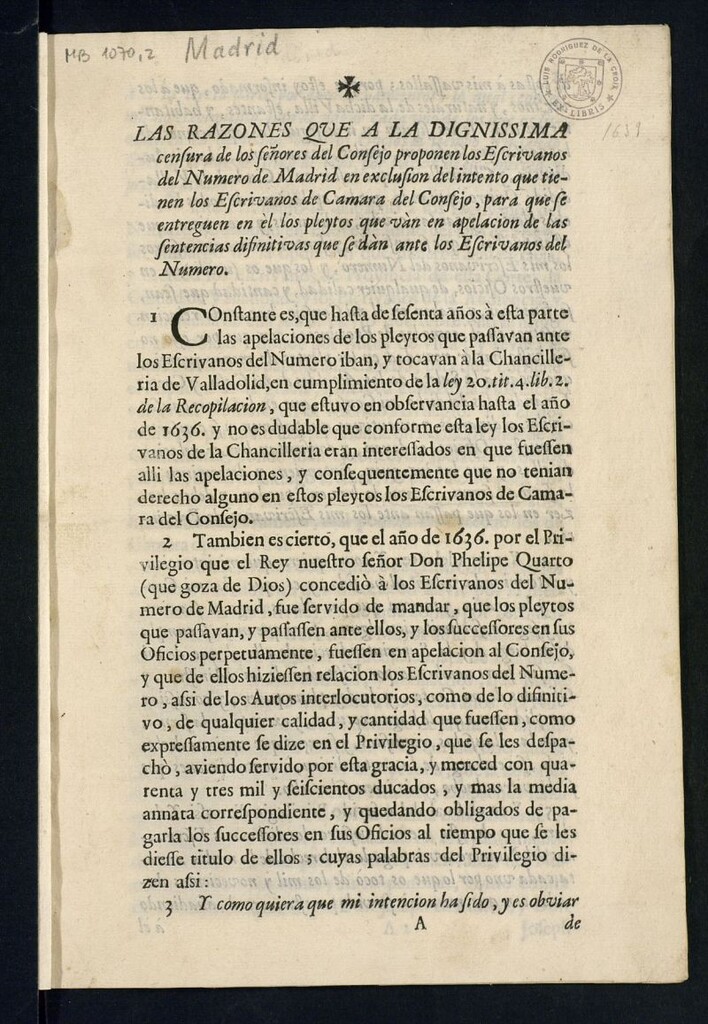 MB 1070,2 Madrid
LUIS RODRIGUEZ DE LA CROIX
EX-LIBRIS
✠
LAS RAZONES QVE A LA DIGNISSIMA
cenſura de los ſeñores del Conſejo proponen los Eſcrivanos
del Numero de Madrid en excluſion del intento que tie-
nen los Eſcrivanos de Camara del Conſejo, para que ſe
entreguen en èl los pleytos que vàn en apelacion de las
ſentencias difinitivas que ſe dàn ante los Eſcrivanos del
Numero.
1 COnſtante es, que haſta de ſeſenta años à eſta parte
las apelaciones de los pleytos que paſſavan ante
los Eſcrivanos del Numero iban, y tocavan à la Chancille-
ria de Valladolid, en cumplimiento de la ley 20. tit. 4. lib. 2.
de la Recopilacion, que eſtuvo en obſervancia haſta el año
de 1636. y no es dudable que conforme eſta ley los Eſcri-
vanos de la Chancilleria eran intereſſados en que fueſſen
alli las apelaciones, y conſequentemente que no tenian
derecho alguno en eſtos pleytos los Eſcrivanos de Cama-
ra del Conſejo.
2 Tambien es cierto, que el año de 1636. por el Pri-
vilegio que el Rey nueſtro ſeñor Don Phelipe Quarto
(que goza de Dios) concediò à los Eſcrivanos del Nu-
mero de Madrid, fue ſervido de mandar, que los pleytos
que paſſavan, y paſſaſſen ante ellos, y los ſucceſſores en ſus
Oficios perpetuamente, fueſſen en apelacion al Conſejo,
y que de ellos hizieſſen relacion los Eſcrivanos del Nume-
ro, aſsi de los Autos interlocutorios, como de lo difiniti-
vo, de qualquier calidad, y cantidad que fueſſen, como
expreſſamente ſe dize en el Privilegio, que ſe les deſpa-
chò, aviendo ſervido por eſta gracia, y merced con qua-
renta y tres mil y ſeiſcientos ducados, y mas la media
annata correſpondiente, y quedando obligados de pa-
garla los ſucceſſores en ſus Oficios al tiempo que ſe les
dieſſe titulo de ellos; cuyas palabras del Privilegio di-
zen aſsi:
3 Y como quiera que mi intencion ha ſido, y es obviar
A de